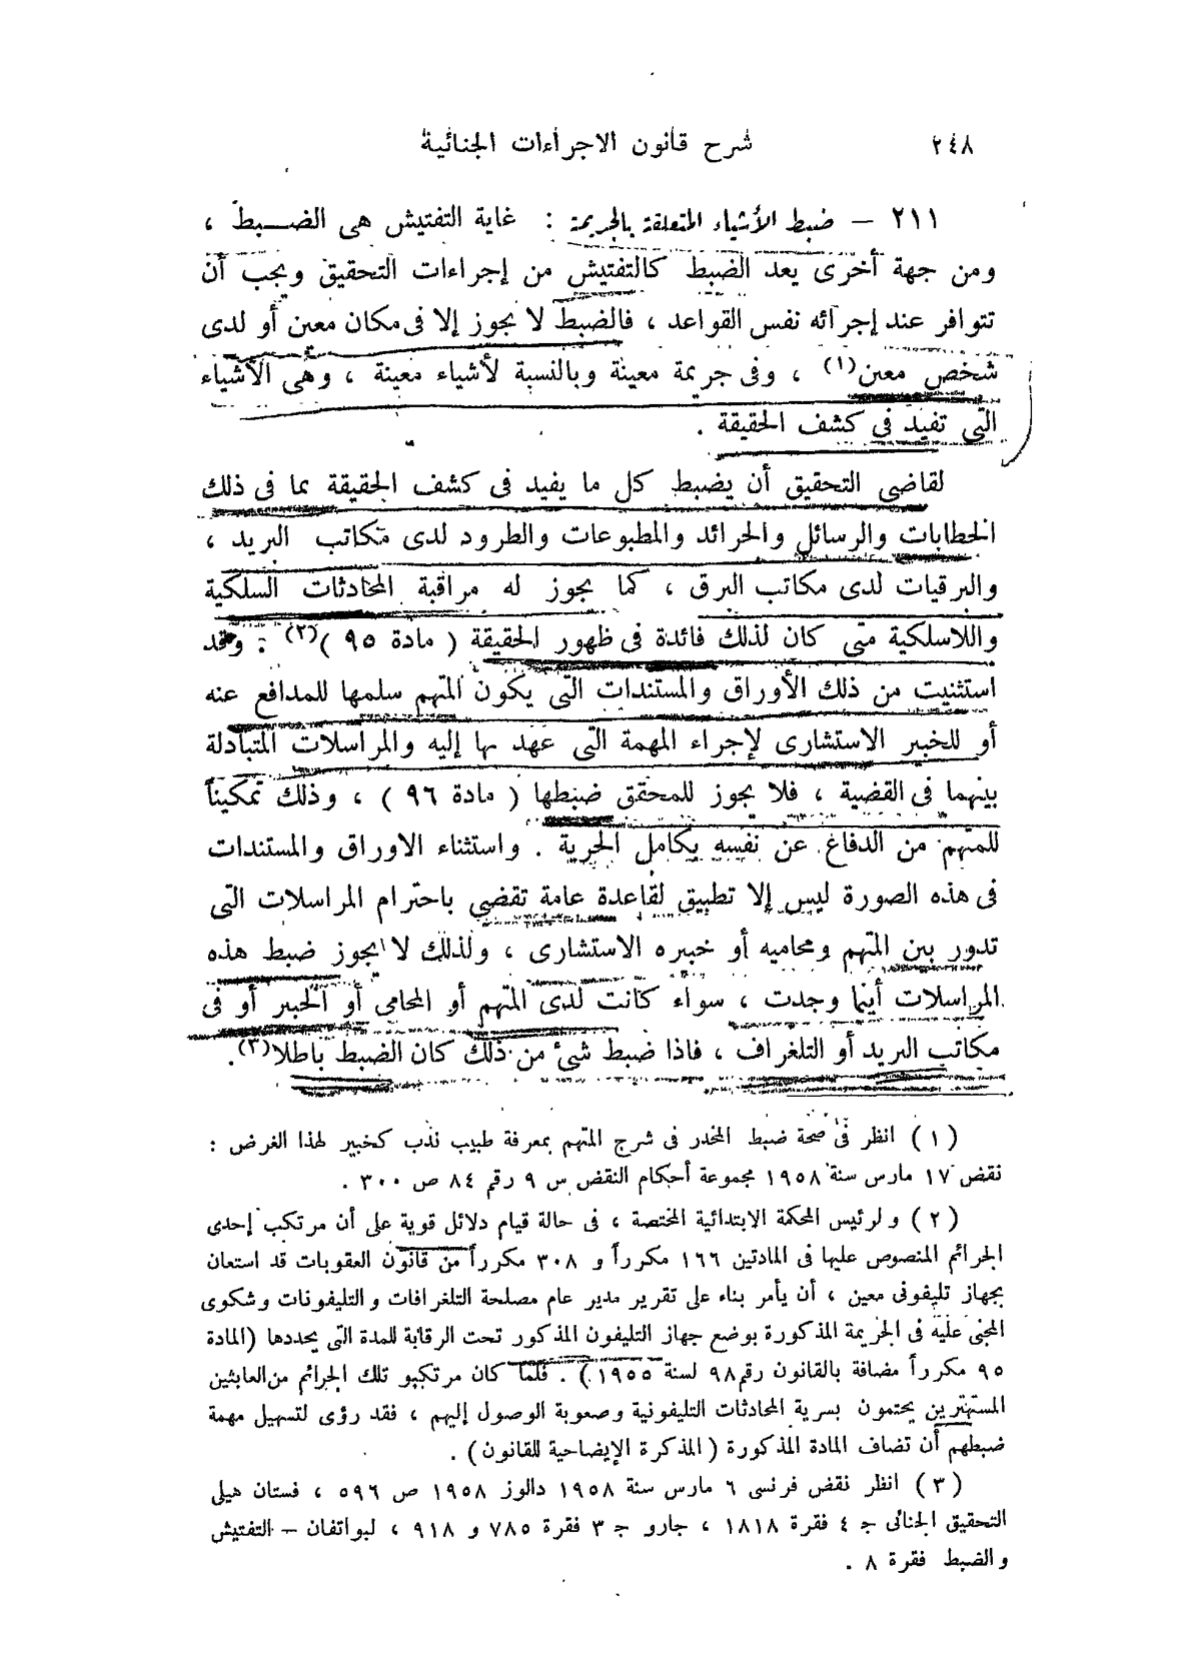 ٢٤٨ شرح قانون الاجراءات الجنائية
٢١١ — ضبط الأشياء المتعلقة بالجريمة : غاية التفتيش هى الضبط ،
ومن جهة أخرى يعد الضبط كالتفتيش من إجراءات التحقيق ويجب أن
تتوافر عند إجرائه نفس القواعد ، فالضبط لا يجوز إلا فى مكان معين أو لدى
شخص معين(١) ، وفى جريمة معينة وبالنسبة لأشياء معينة ، وهى الأشياء
التى تفيد فى كشف الحقيقة .
لقاضى التحقيق أن يضبط كل ما يفيد فى كشف الحقيقة بما فى ذلك
الخطابات والرسائل والجرائد والمطبوعات والطرود لدى مكاتب البريد ،
والبرقيات لدى مكاتب البرق ، كما يجوز له مراقبة المحادثات السلكية
واللاسلكية متى كان لذلك فائدة فى ظهور الحقيقة ( مادة ٩٥ )(٢) . وقد
استثنيت من ذلك الأوراق والمستندات التى يكون المتهم سلمها للمدافع عنه
أو للخبير الاستشارى لإجراء المهمة التى عهد بها إليه والمراسلات المتبادلة
بينهما فى القضية ، فلا يجوز للمحقق ضبطها ( مادة ٩٦ ) ، وذلك تمكيناً
للمتهم من الدفاع عن نفسه بكامل الحرية . واستثناء الاوراق والمستندات
فى هذه الصورة ليس إلا تطبيق لقاعدة عامة تقضى باحترام المراسلات التى
تدور بين المتهم ومحاميه أو خبيره الاستشارى ، ولذلك لا يجوز ضبط هذه
المراسلات أينما وجدت ، سواء كانت لدى المتهم أو المحامى أو الخبير أو فى
مكاتب البريد أو التلغراف ، فاذا ضبط شئ من ذلك كان الضبط باطلا(٣).
( ١ ) انظر فى صحة ضبط المخدر فى شرج المتهم بمعرفة طبيب ندب كخبير لهذا الغرض :
نقض ١٧ مارس سنة ١٩٥٨ مجموعة أحكام النقض س ٩ رقم ٨٤ ص ٣٠٠ .
( ٢ ) ولرئيس المحكمة الابتدائية المختصة ، فى حالة قيام دلائل قوية على أن مرتكب إحدى
الجرائم المنصوص عليها فى المادتين ١٦٦ مكرراً و ٣٠٨ مكرراً من قانون العقوبات قد استعان
بجهاز تليفونى معين ، أن يأمر بناء على تقرير مدير عام مصلحة التلغرافات والتليفونات وشكوى
المجنى عليه فى الجريمة المذكورة بوضع جهاز التليفون المذكور تحت الرقابة للمدة التى يحددها (المادة
٩٥ مكرراً مضافة بالقانون رقم ٩٨ لسنة ١٩٥٥ ) . فلما كان مرتكبو تلك الجرائم من العابثين
المستهترين يحتمون بسرية المحادثات التليفونية وصعوبة الوصول إليهم ، فقد رؤى لتسهيل مهمة
ضبطهم أن تضاف المادة المذكورة ( المذكرة الإيضاحية للقانون ) .
( ٣ ) انظر نقض فرنسى ٦ مارس سنة ١٩٥٨ دالوز ١٩٥٨ ص ٥٩٦ ، فستان هيلى
التحقيق الجنائى جـ ٤ فقرة ١٨١٨ ، جارو جـ ٣ فقرة ٧٨٥ و ٩١٨ ، لبواتفان — التفتيش
والضبط فقرة ٨ .